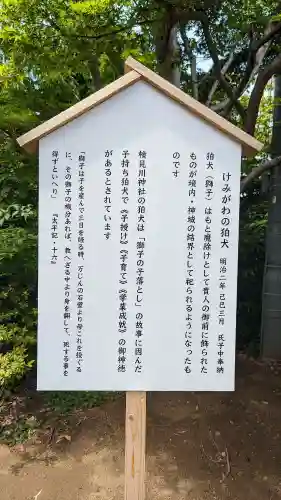 けみがわの狛犬 明治二年 己巳三月 氏子中奉納
狛犬（獅子）はもと魔除けとして貴人の御前に飾られた
ものが境内・神域の結界として祀られるようになったも
のです
検見川神社の狛犬は「獅子の子落とし」の故事に因んだ
子持ち狛犬で《子授け》《子育て》《学業成就》の御神徳
があるとされています
「獅子は子を産んで三日を経る時、万じんの石壁より母これを投ぐる
に、その獅子の機分あれば、教へざる中より身を翻して、死する事を
得ずといへり」 『太平記・十六』